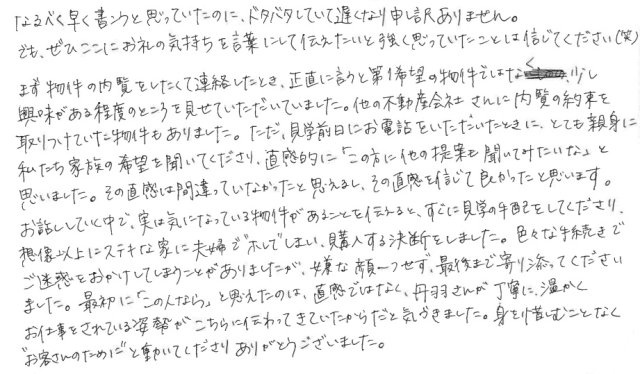 なるべく早く書こうと思っていたのに、ドタバタしていて遅くなり申し訳ありません。
でも、ぜひここにお礼の気持ちを言葉にして伝えたいと強く思っていたことは信じてください(笑)
まず物件の内覧をしたくて連絡したとき、正直に言うと第1希望の物件ではなく少し
興味がある程度のところを見せていただいていました。他の不動産会社さんに内覧の約束を
取りつけていた物件もありました。ただ、見学前日にお電話をいただいたときに、とても親身に
私たち家族の希望を聞いてくださり、直感的に「この方に他の提案も聞いてみたいな」と
思いました。その直感は間違っていなかったと思えるし、その直感を信じて良かったと思います。
お話ししていく中で、実は気になっている物件があることを伝えると、すぐに見学の手配をしてくださり、
想像以上にステキな家に夫婦でホレてしまい、購入する決断をしました。色々な手続きで
ご迷惑をおかけしてしまうことがありましたが、嫌な顔一つせず、最後まで寄り添ってください
ました。最初に「この人なら」と思えたのは、直感ではなく、丹羽さんが丁寧に、温かく
お仕事をされている姿勢がこちらに伝わってきていたからだと気づきました。身を惜しむことなく
"お客さんのために"と動いてくださりありがとうございました。